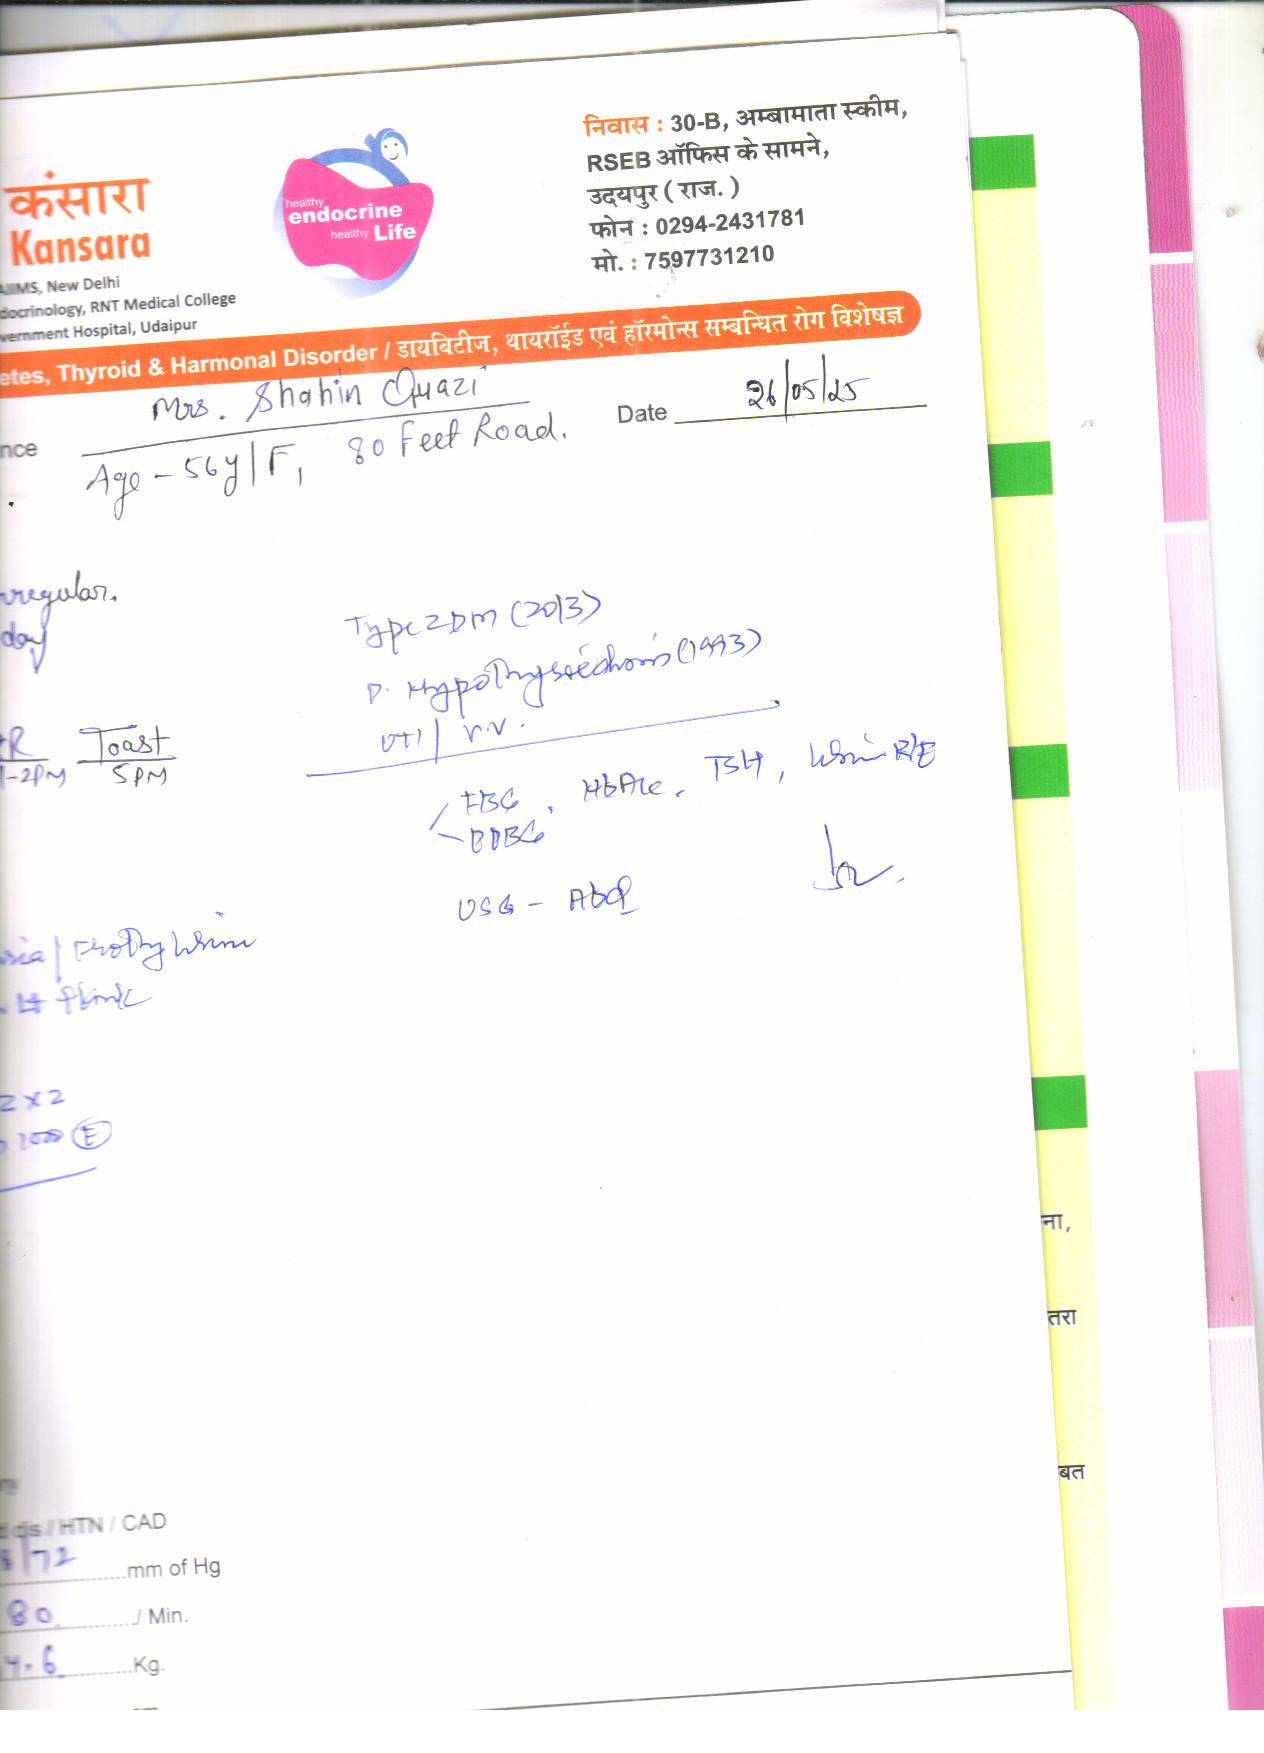 कंसारा
Kansara
AIIMS, New Delhi
docrinology, RNT Medical College
vernment Hospital, Udaipur
healthy
endocrine
healthy Life
निवास : 30-B, अम्बामाता स्कीम,
RSEB ऑफिस के सामने,
उदयपुर ( राज. )
फोन : 0294-2431781
मो. : 7597731210
etes, Thyroid & Harmonal Disorder / डायबिटीज, थायरॉईड एवं हॉरमोन्स सम्बन्धित रोग विशेषज्ञ
nce Mrs. Shahin Quazi Date 26/05/25
Age - 56y/F, 80 Feet Road.
rregular.
day
Type 2 DM (2013)
P. Hypothyroidism (1993)
UTI / V.V.
R Toast
1-2PM 5PM
FBG, HbA1c, TSH, Urine R/E
PPBG
USG - Abd
Frothy Urine
2 x 2
1000 E
dis / HTN / CAD
8/72 mm of Hg
80 / Min.
4.6 Kg.
ना,
तरा
बत